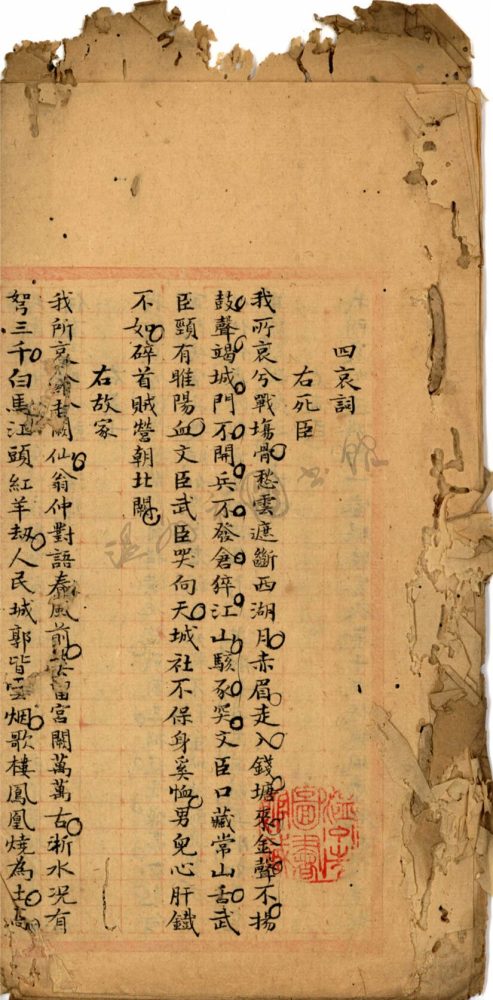 四哀詞
右死臣
我所哀兮戰塲骨愁雲遮斷西湖月赤眉走入錢塘來金聲不揚
鼓聲竭城門不開兵不發倉猝江山駭豕突文臣口藏常山舌武
臣頸有睢陽血文臣武臣哭向天城社不保身奚恤男兒心肝鐵
不如碎首賊營朝北闕
右故家
我所哀兮仙翁仲對語春風前留宮闕萬萬古浙水况有
弩三千白馬江頭紅羊劫人民城郭皆雲烟歌樓鳳凰燒為土高